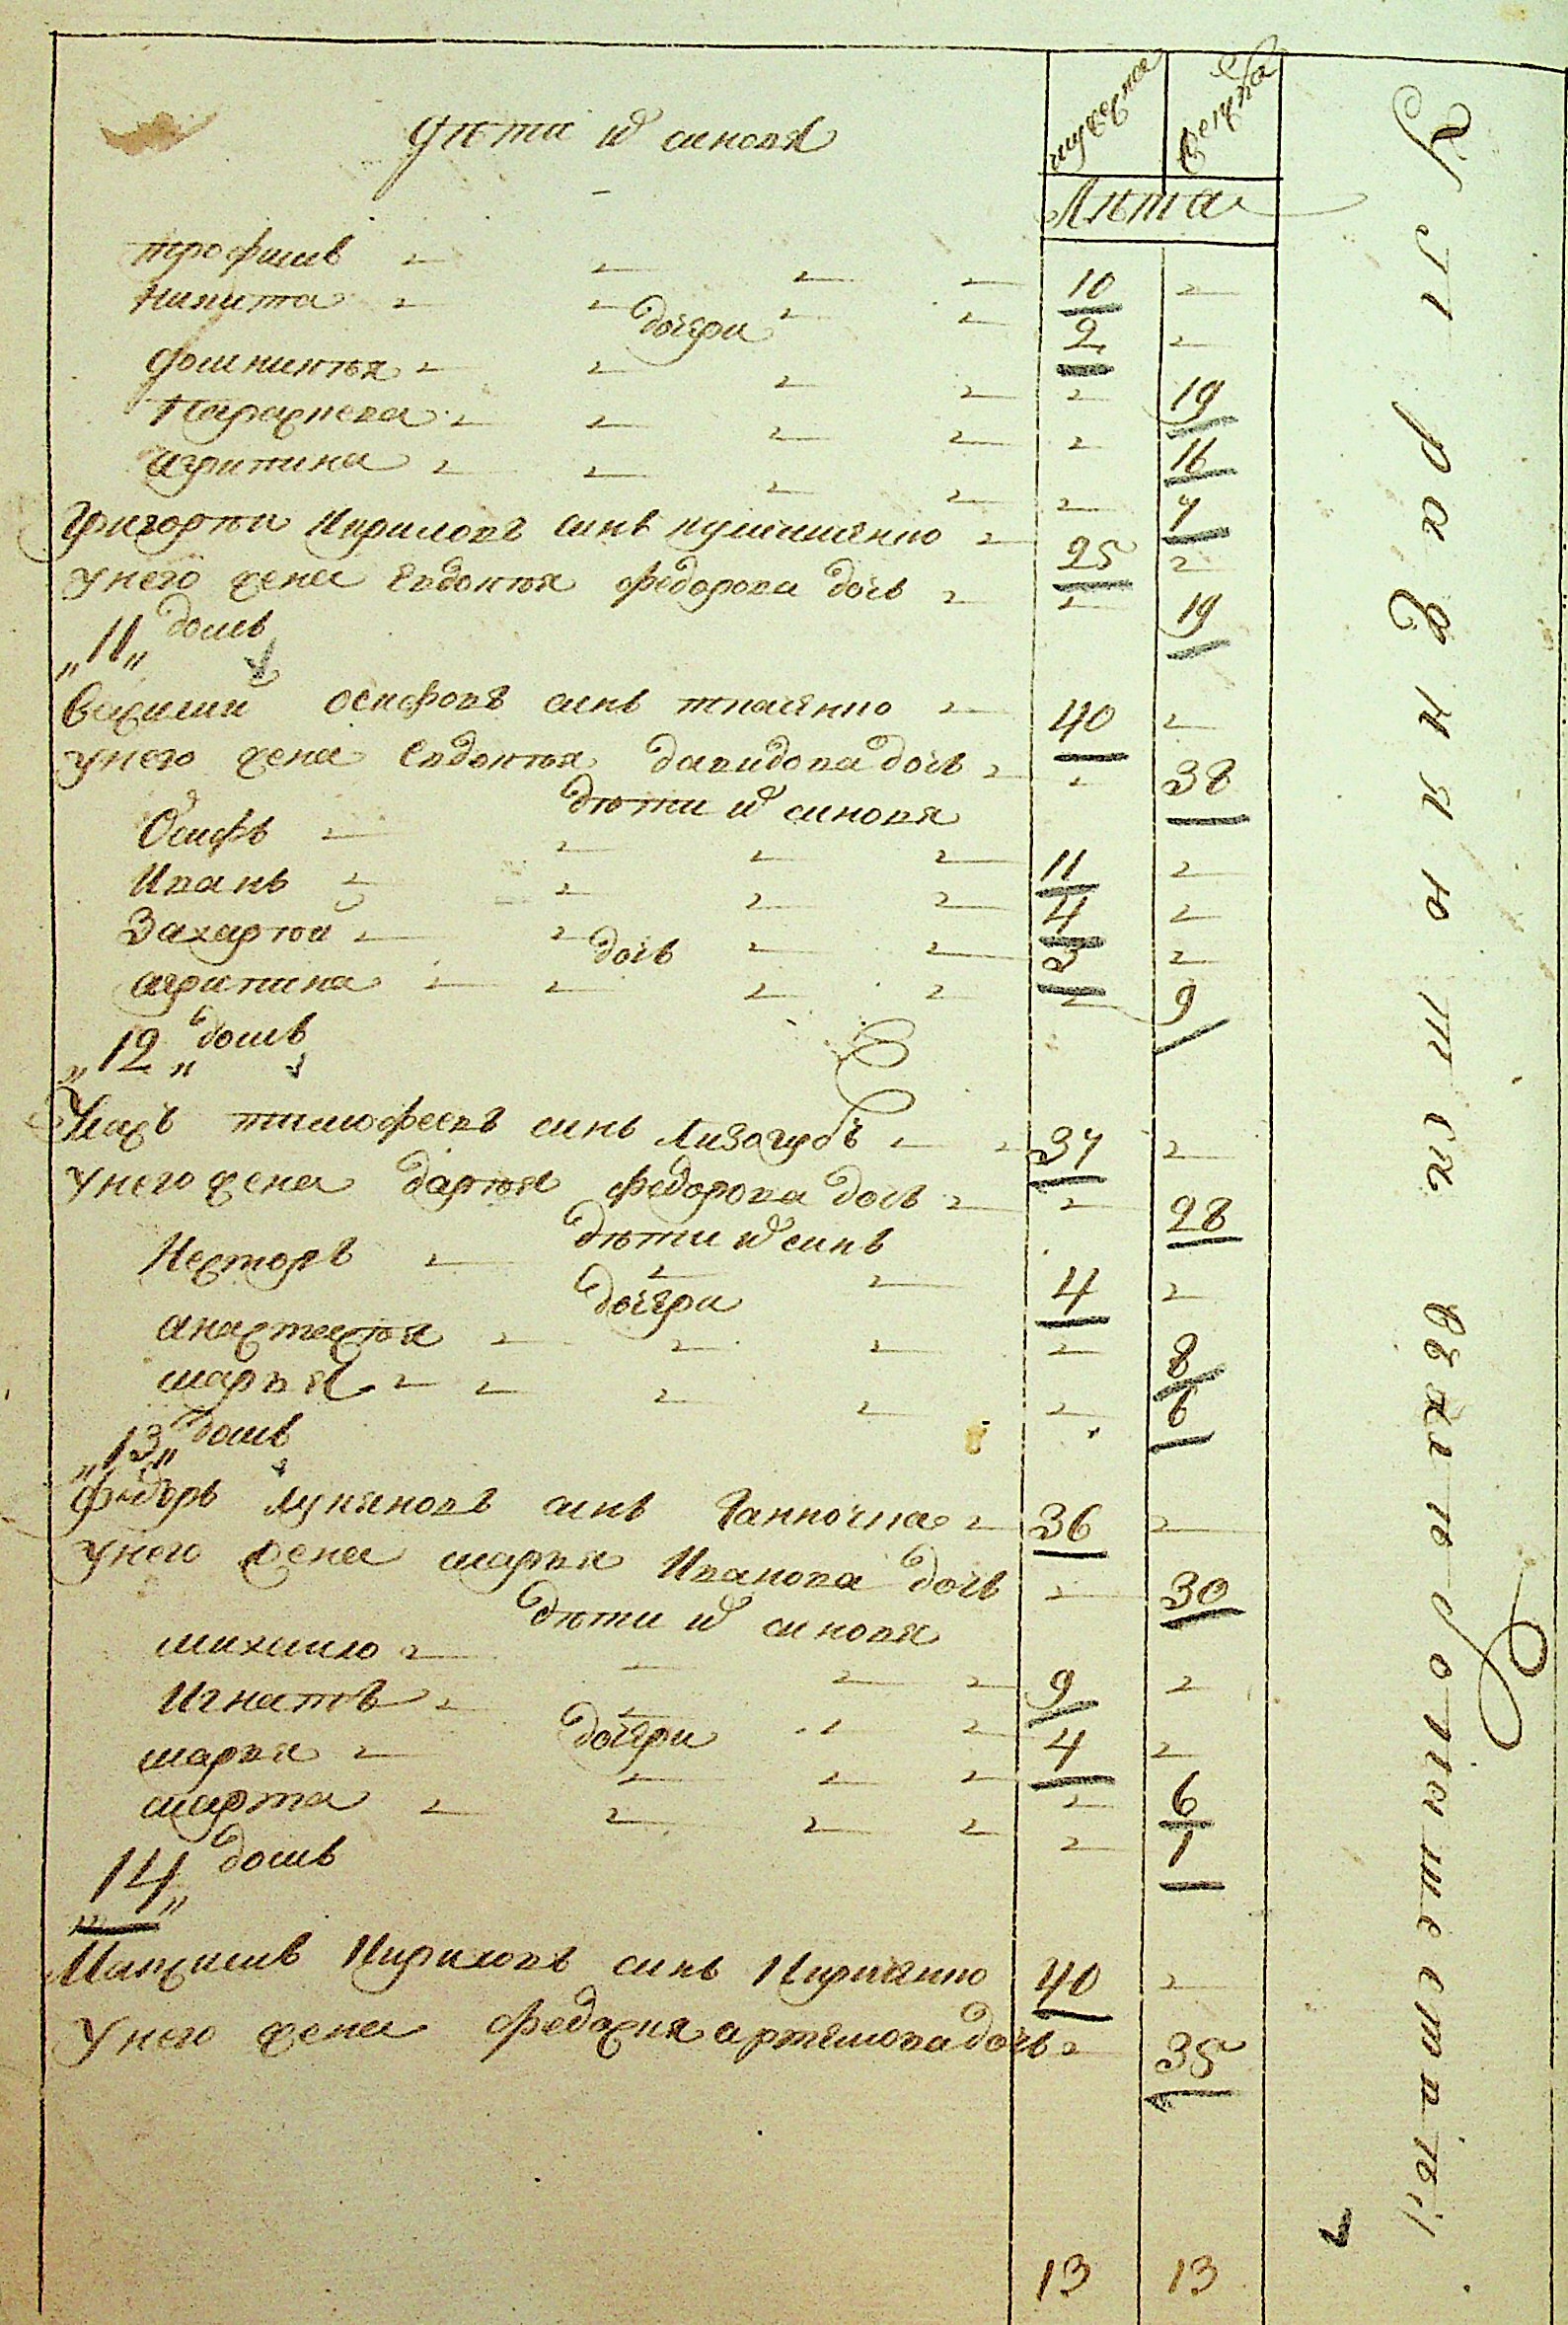 дѣти и синовя
мужеска
женска
Лѣта
трофимъ 10
никита 2
дочери
Фотинія 19
Параскева 16
агрипина 7
Григорій Кириловъ синъ кушниренко 25
унего жена Евдокія федорова дочъ 19
„11„ домъ
Василий осифовъ синъ ткаченко 40
унего жена Евдокія давидова дочъ 38
дѣти и синовя
Осифъ 11
Иванъ 4
Захарій 3
дочъ
агрипина 9
„12„ домъ
Улась тимофеевъ синъ Лизогубъ 37
унего жена дарія федорова дочъ 28
дѣти и синъ
Несторъ 4
дочери
анастасія 8
марія 6
„13„ домъ
Федоръ лукяновъ синъ 36
унего жена марья Иванова дочъ 30
дѣти и синовя
михаило 9
Игнатъ 4
дочери
марья 6
марта 1
14„ домъ
Максимъ Кириловъ синъ Кириченко 40
унего жена федосия артемова дочъ 35
13 13